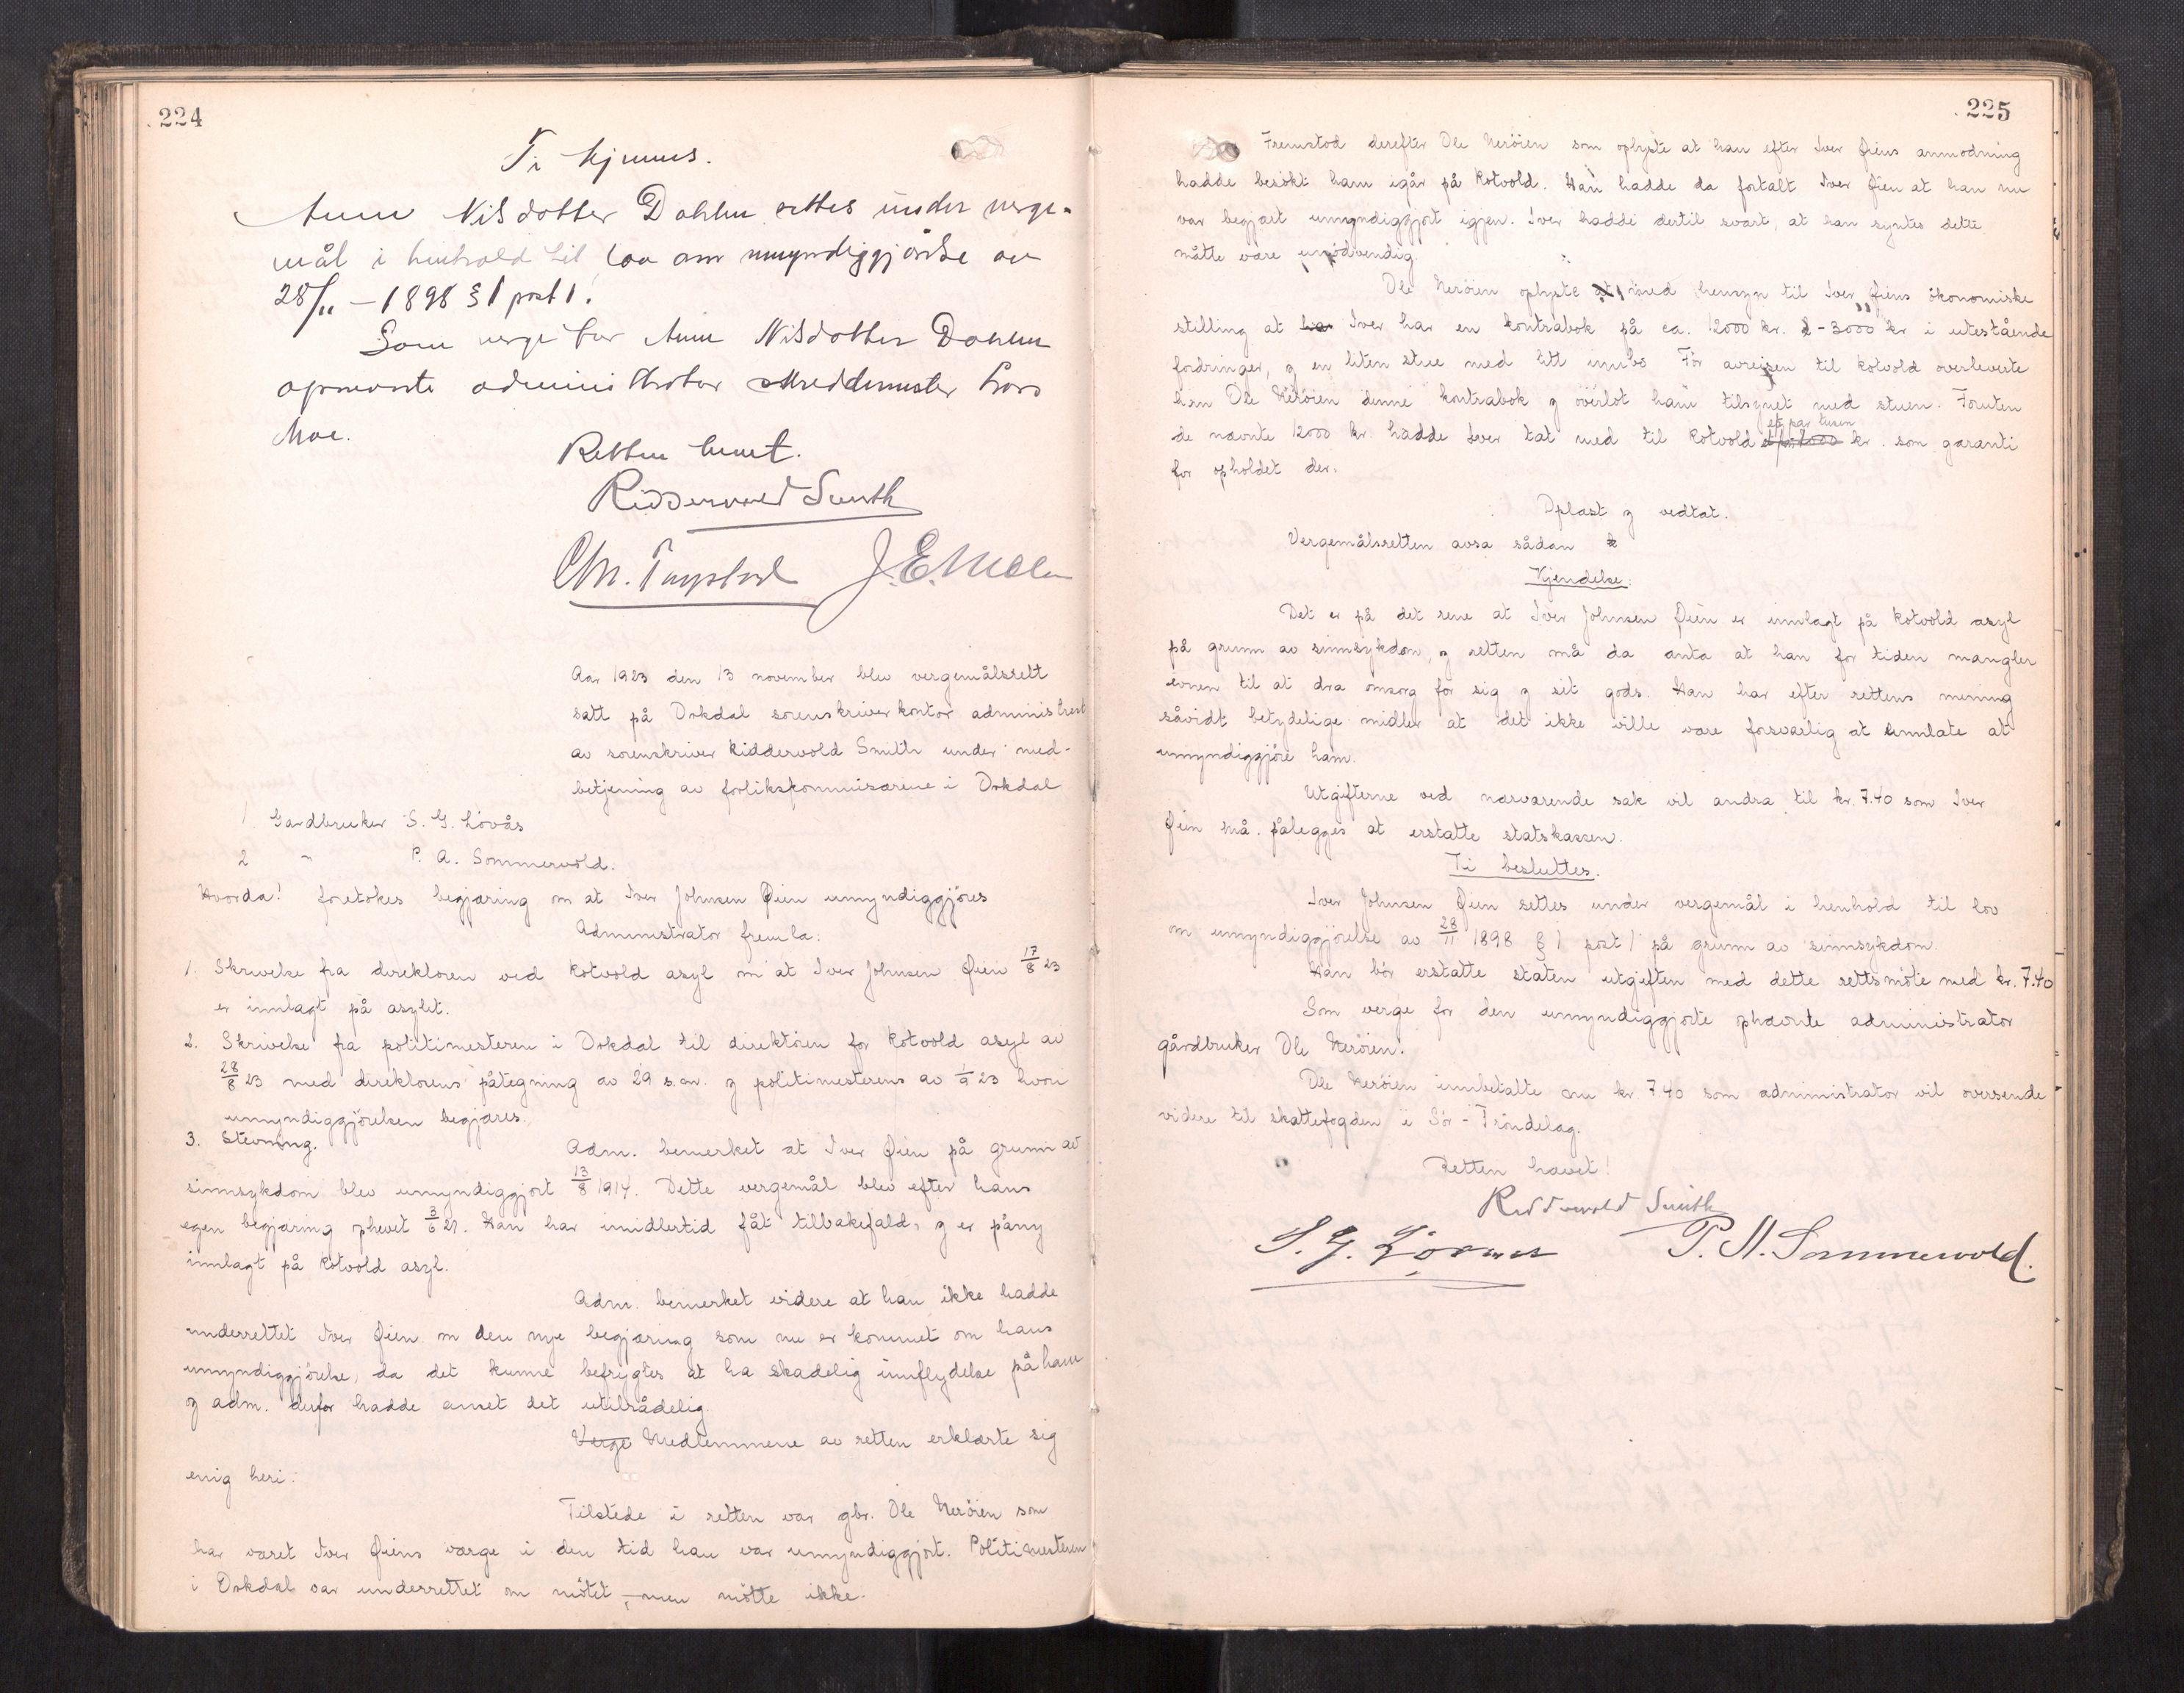 224
Ti kjennes.
Anne Nilsdotter Dahlen settes under verge-
mål i henhold til lov om umyndiggjørelse av
28/11 - 1898 § 1 post 1.
Som verge for Anne Nilsdotter Dahlen
opnevnte administrator Lars
Moe.
Retten hevet.
Riddervold Smith
Chr.
Aar 1923 den 13 november blev vergemålsrett
satt på Orkdal sorenskriverkontor administrert
av sorenskriver Riddervold Smith under med-
betjening av forlikskommisærene i Orkdal
1. Gardbruker S. G. Lövås
2 " P. A. Sommervold.
Hvorda! foretokes begjæring om at Iver Johnsen Øien umyndiggjöres
Administrator fremla:
1. Skrivelse fra direktören ved Rotvold asyl om at Iver Johnsen Øien 17/8 23
er innlagt på asylet.
2. Skrivelse fra politimesteren i Orkdal til direktören for Rotvold asyl av
28/8 23 med direktörens påtegning av 29 s.m. og politimesterens av 1/9 23 hvori
umyndiggjörelsen begjæres.
3. Stevning.
Adm. bemerket at Iver Øien på grunn av
sinnsykdom blev umyndiggjort 13/8 1914. Dette vergemål blev efter hans
egen begjæring ophevet 3/6 21. Han har imidlertid fåt tilbakefald, og er påny
innlagt på Rotvold asyl.
Adm. bemerket videre at han ikke hadde
underrettet Iver Øien om den nye begjæring som nu er kommet om hans
umyndiggjörelse, da det kunne befryktes at ha skadelig innflydelse på ham
og adm. derfor hadde anset det utilrådelig.
Verge Medlemmene av retten erklærte sig
enig heri.
Tilstede i retten var gbr. Ole Neröien som
har været Iver Øiens værge i den tid han var umyndiggjort. Politimesteren
i Orkdal var underrettet om mötet, men mötte ikke.
225
Fremstod derefter Ole Neröien som oplyste at han efter Iver Øiens anmodning
hadde besökt ham igår på Rotvold. Han hadde da fortalt Iver Øien at han nu
var begjært umyndiggjort igjen. Iver hadde dertil svart, at han syntes dette
måtte være unödvendig.
Ole Neröien oplyste at med hensyn til Iver Øiens ökonomiske
stilling at han Iver har en kontrabok på ca. 12000 kr. 2-3000 kr i utestående
fordringer, og en liten stue med litt innbo. För avreisen til Rotvold overleverte
han Ole Neröien denne kontrabok og overlot ham tilsynet med stuen. Foruten
de nævnte 12000 kr hadde Iver tat med til Rotvold et par tusen kr. som garanti
for opholdet der.
Oplæst og vedtat.
Vergemålsretten avsa sådan k
Kjendelse:
Det er på det rene at Iver Johnsen Øien er innlagt på Rotvold asyl
på grunn av sinnsykdom, og retten må da anta at han for tiden mangler
evnen til at dra omsorg for sig og sit gods. Han har efter rettens mening
såvidt betydelige midler at det ikke ville være forsvarlig at unnlate at
umyndiggjöre ham.
Utgifterne ved nærværende sak vil andra til kr. 7.40 som Iver
Øien må pålegges at erstatte statskassen.
Ti besluttes.
Iver Johnsen Øien settes under vergemål i henhold til lov
om umyndiggjörelse av 28/11 1898 § 1 post 1 på grunn av sinnsykdom.
Han bör erstatte staten utgiften med dette rettsmöte med kr. 7.40
Som verge for den umyndiggjorte opnævnte administrator
gårdbruker Ole Neröien.
Ole Neröien innbetalte nu kr. 7.40 som administrator vil oversende
videre til skattefogden i Sör-Tröndelag.
Retten hævet!
Riddervold Smith
S. G. Lövaas P. A. Sommervold.